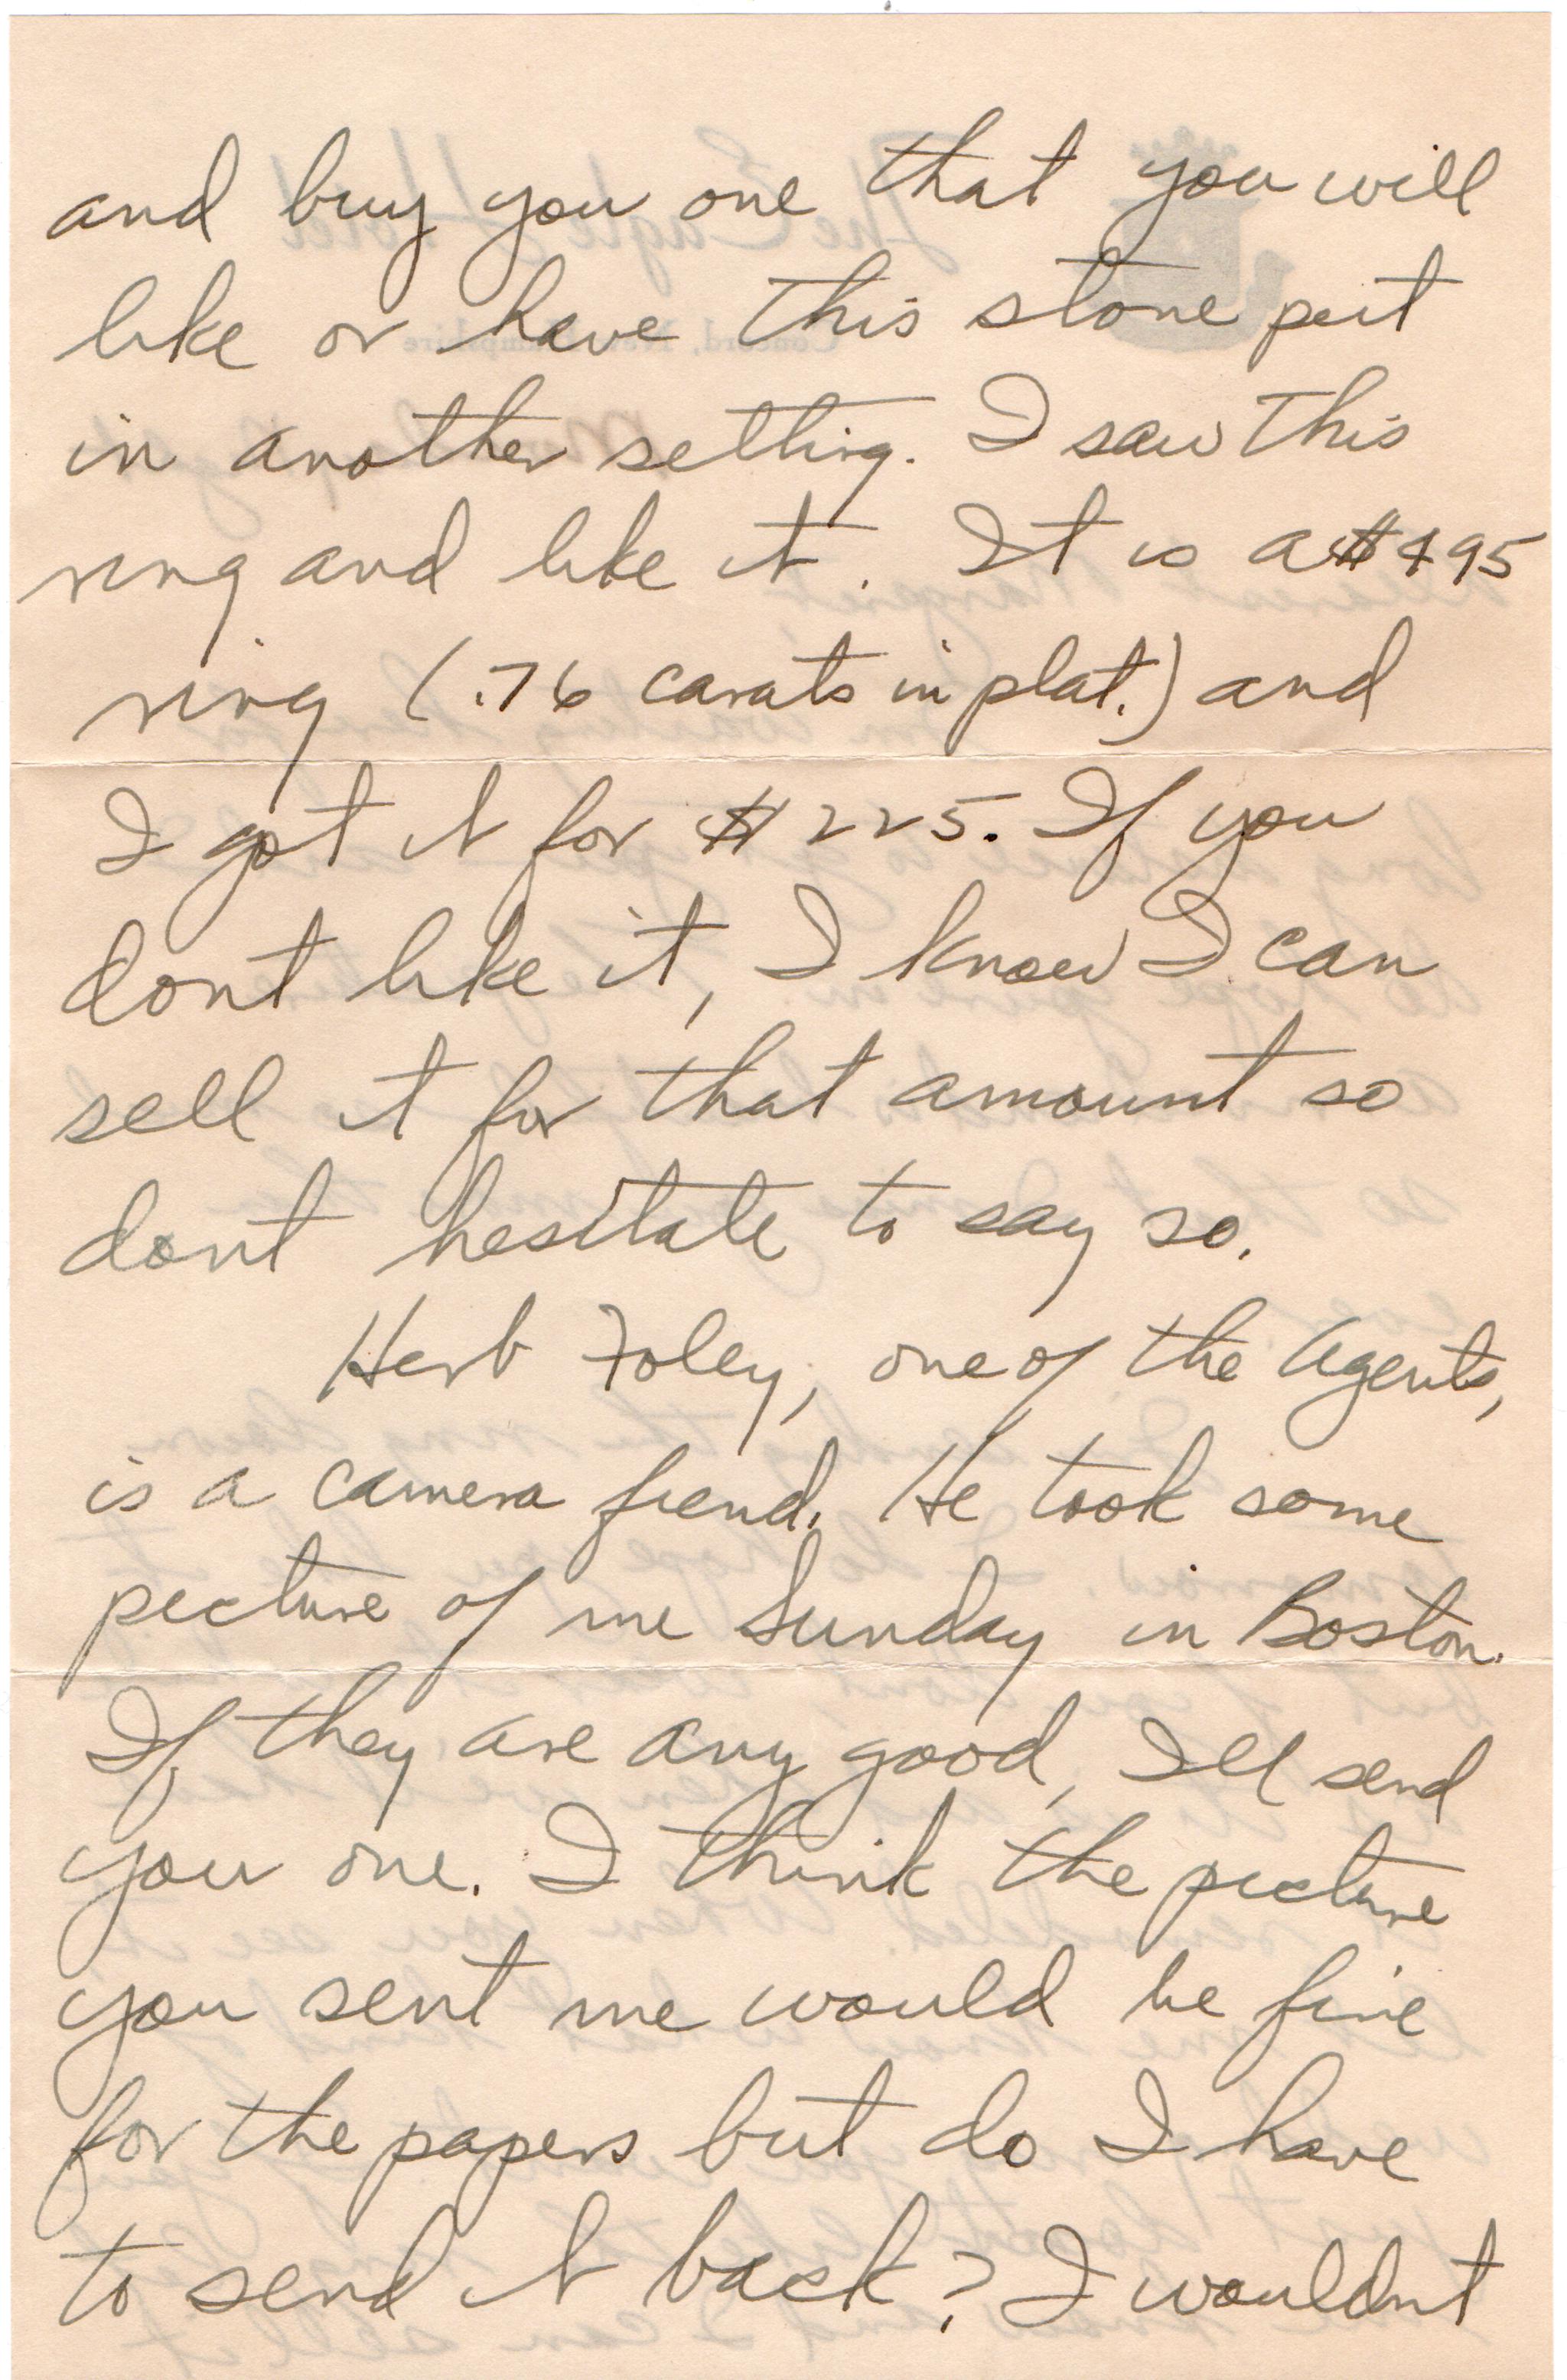 and buy you one that you will
like or have this stone put
in another setting. I saw this
ring and like it. It is a $495
ring (.76 carats in plat.) and
I got it for $225. If you
dont like it, I know I can
sell it for that amount so
dont hesitate to say so.
Herb Foley, one of the Agents,
is a camera fiend. He took some
picture of me Sunday in Boston.
If they are any good, Ill send
you one. I think the picture
you sent me would be fine
for the papers but do I have
to send it back? I wouldnt